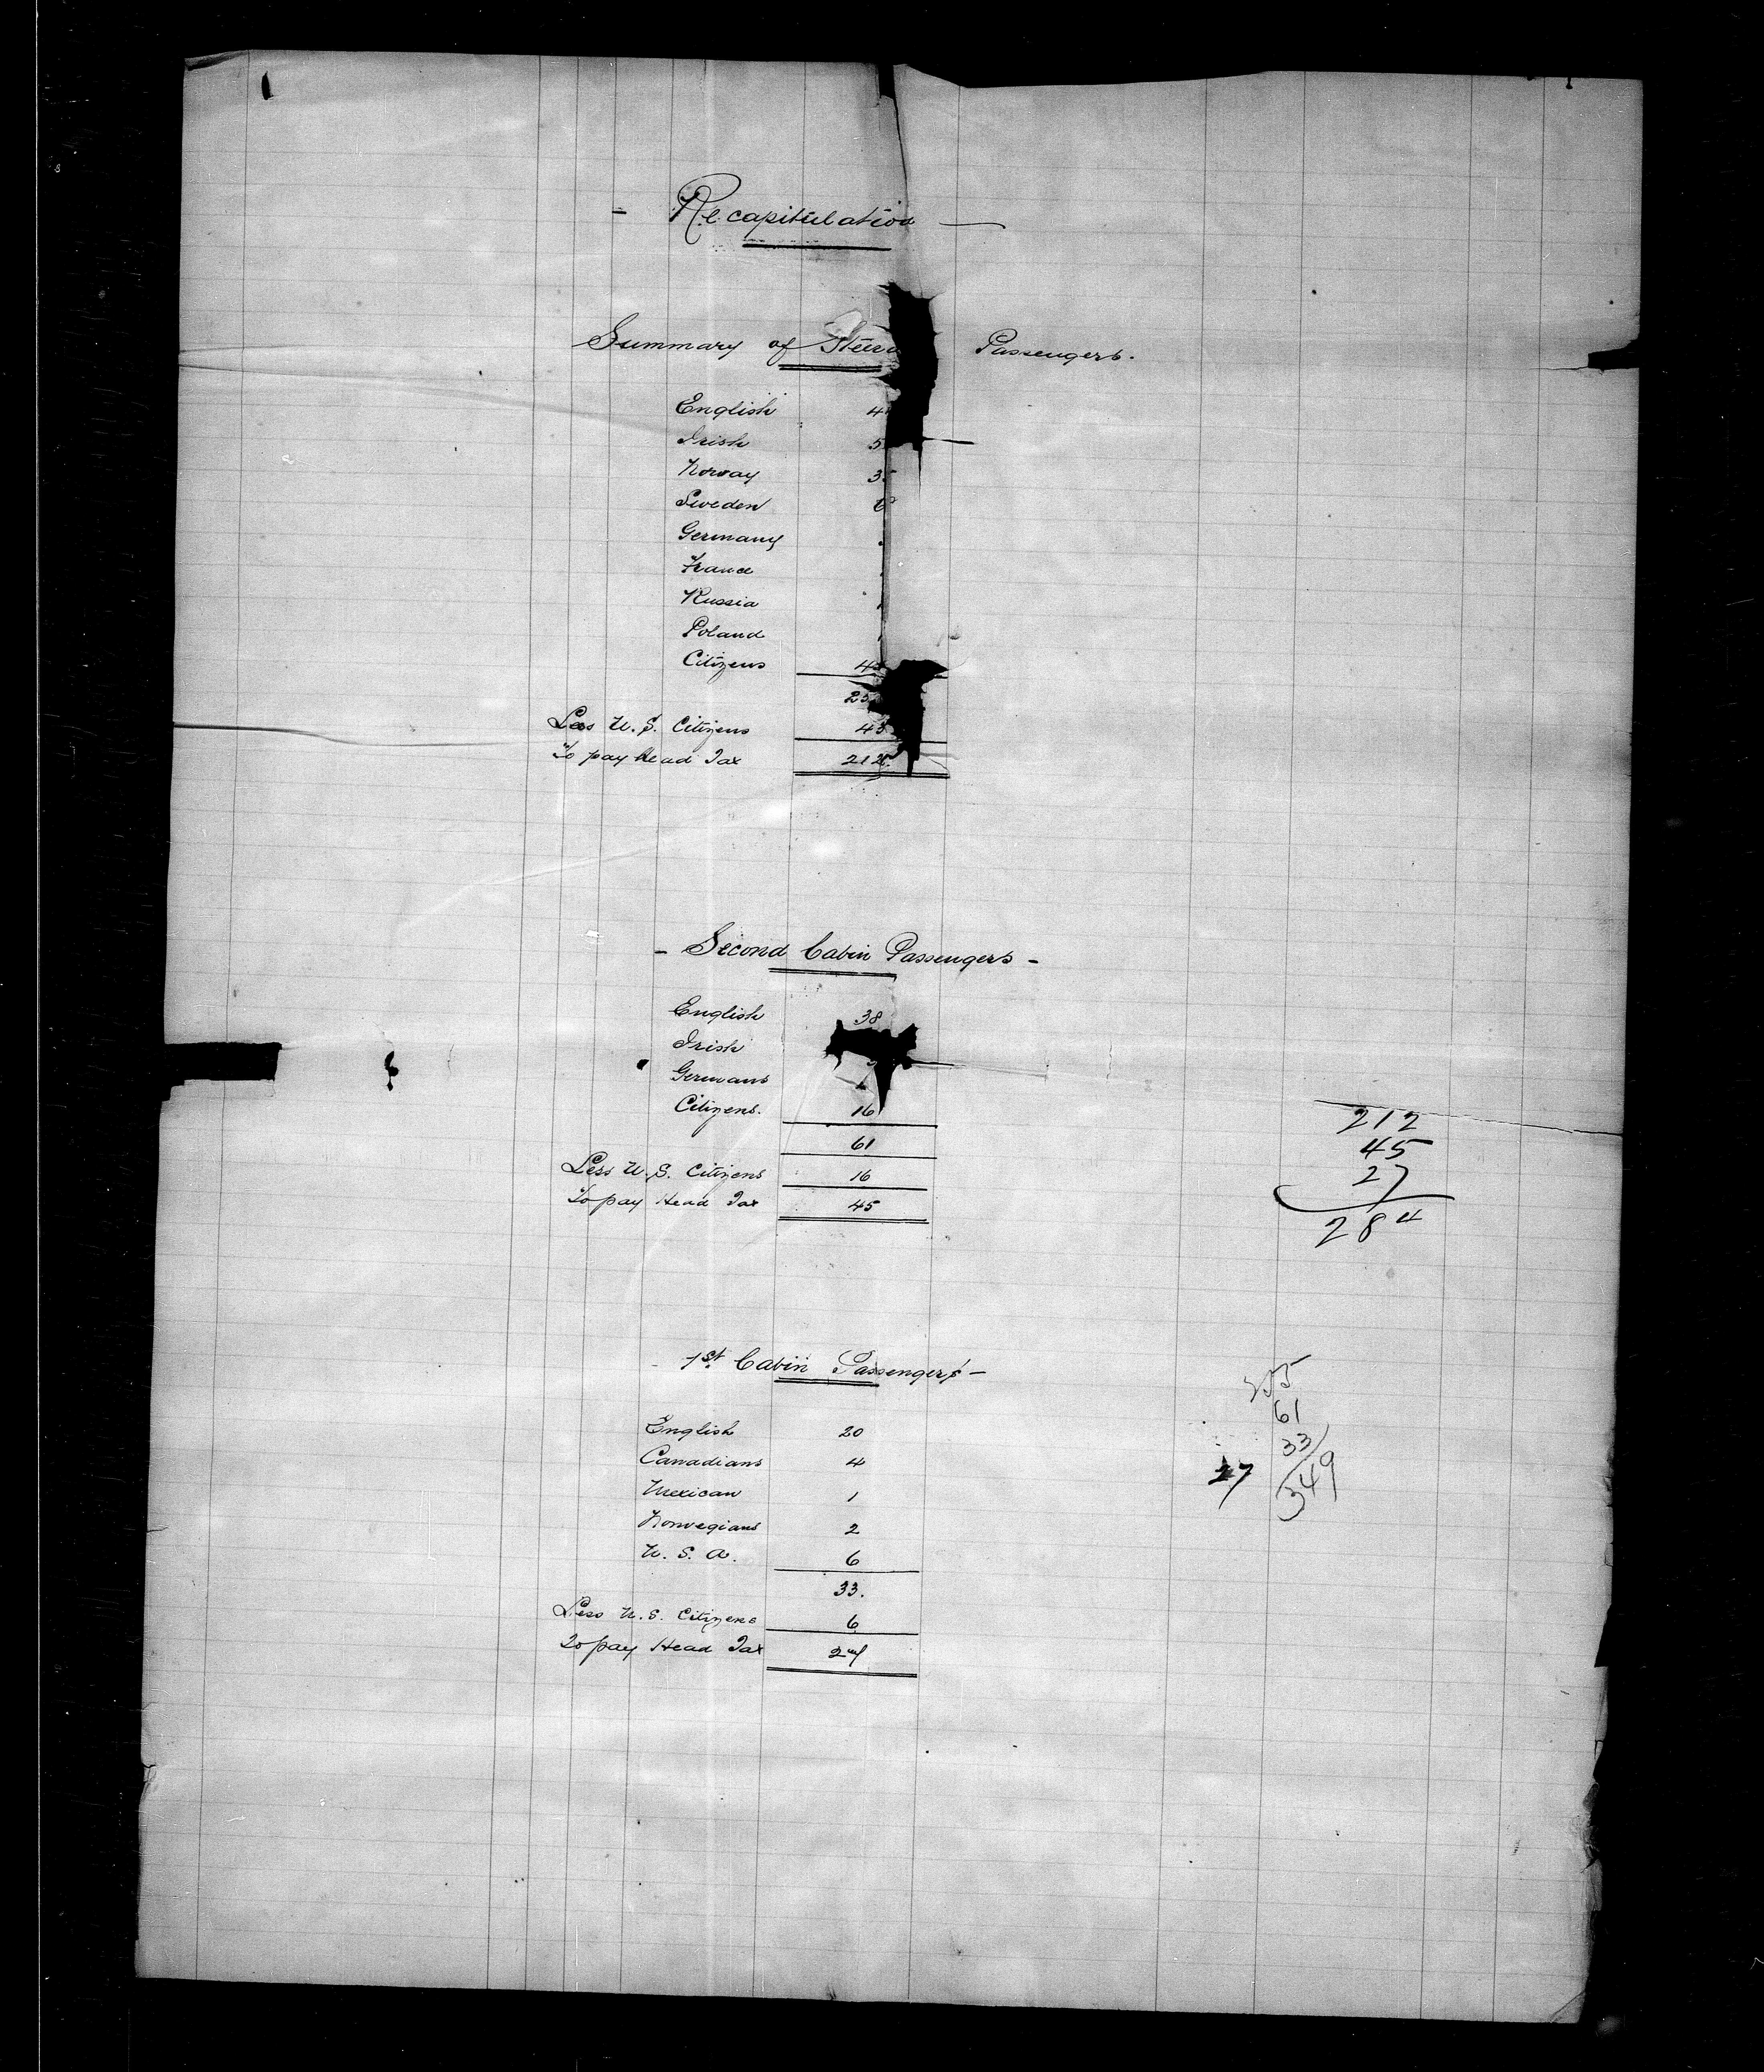 - Recapitulation -
Summary of Passengers.
English
Irish
Norway
Sweden
Germany
France
Russia
Poland
Citizens
Less U. S. Citizens
To pay Head Tax 212
- Second Cabin Passengers -
English 38
Irish
Germans
Citizens. 16
61
Less U. S. Citizens 16
To pay Head Tax 45
212
45
27
284
1st Cabin Passengers -
English 20
Canadians 4
Mexican 1
Norwegians 2
U. S. A. 6
33.
Less U. S. Citizens 6
To pay Head Tax 27
255
61
33
27 349